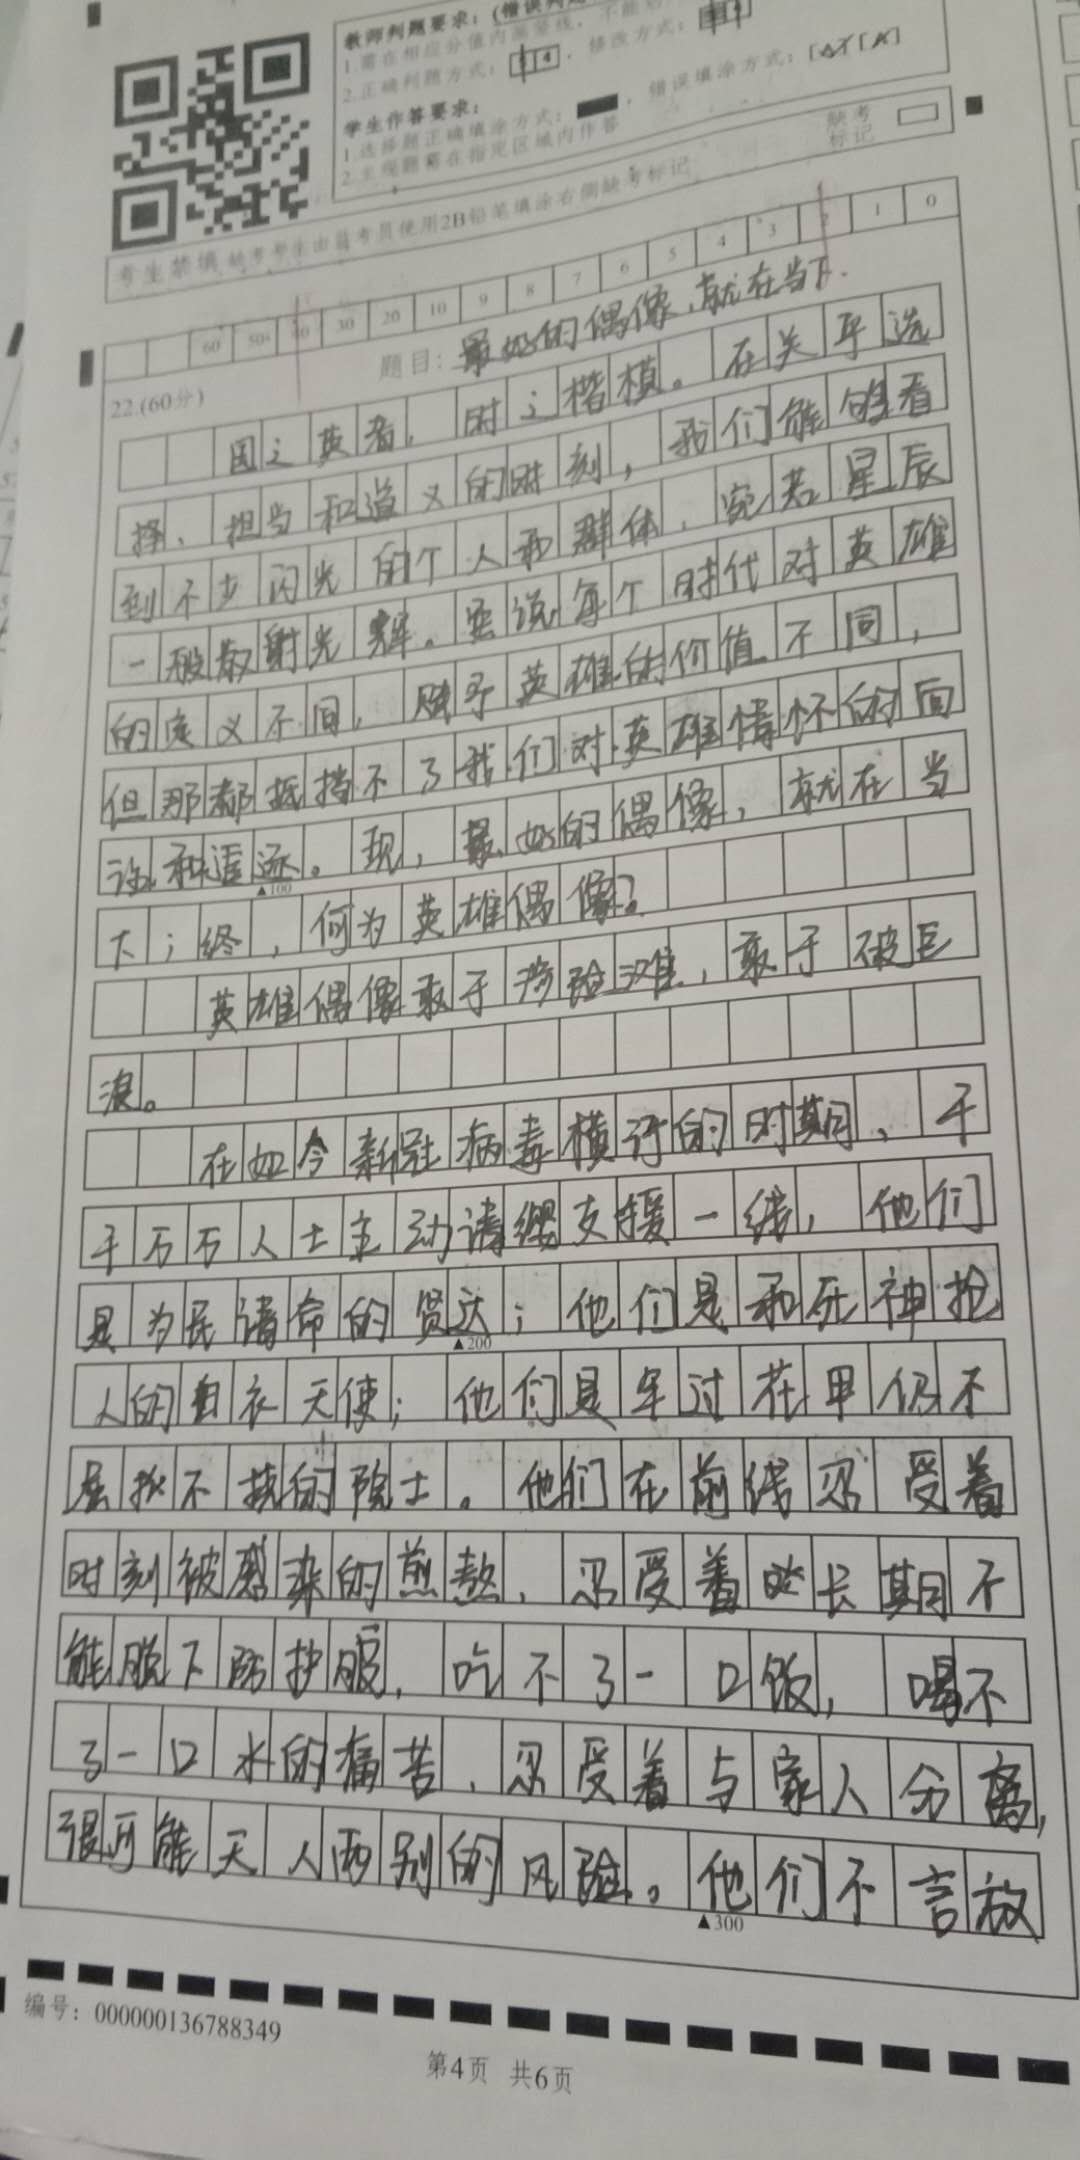 教师判题要求：(错误判
1.需在相应分值内画竖线，不能
2.正确判题方式： 4 ，修改方式：
学生作答要求：
1.选择题正确填涂方式： ，错误填涂方式：
2.主观题需在指定区域内作答
考生禁填 缺考考生由监考员使用2B铅笔填涂右侧缺考标记
缺考
标记
60 50 40 30 20 10 9 8 7 6 5 4 3 2 1 0
22.(60分)
题目：最好的偶像，就在当下.
国之英者，时之楷模。在关乎选
择、担当和道义的时刻，我们能够看
到不少闪光的个人和群体，宛若星辰
一般散射光辉。要说每个时代对英雄
的定义不同，赋予英雄的价值不同，
但那都抵挡不了我们对英雄情怀的面
评和追逐。现，最好的偶像，就在当
▲100
下；终，何为英雄偶像？
英雄偶像敢于涉险滩，敢于破巨
浪。
在如今新冠病毒横行的时期，千
千万万人士主动请缨支援一线，他们
是为民请命的贤达；他们是和死神抢
▲200
人的白衣天使；他们是年过花甲仍不
屈挠不挠的院士。他们在前线忍受着
时刻被感染的煎熬，忍受着 长期不
能脱下防护服，吃不了一口饭，喝不
了一口水的痛苦，忍受着与家人分离，
很可能天人两别的风险。他们不言放
▲300
编号：000000136788349
第4页 共6页